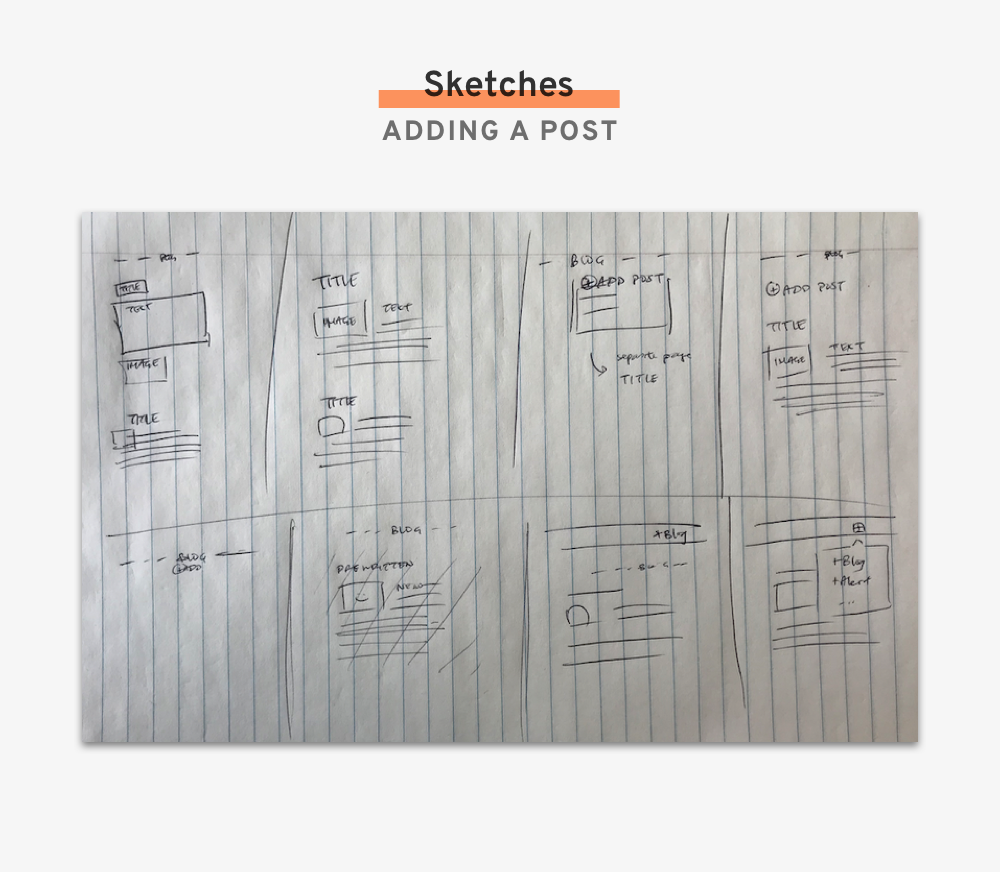 Sketches
ADDING A POST
BLOG
TITLE
TEXT
IMAGE
TITLE
TITLE
IMAGE TEXT
TITLE
BLOG
+ ADD POST
separate page
TITLE
BLOG
+ ADD POST
TITLE
IMAGE TEXT
BLOG
+ ADD
BLOG
NEW
+Blog
BLOG
+
+Blog
+Alert
...